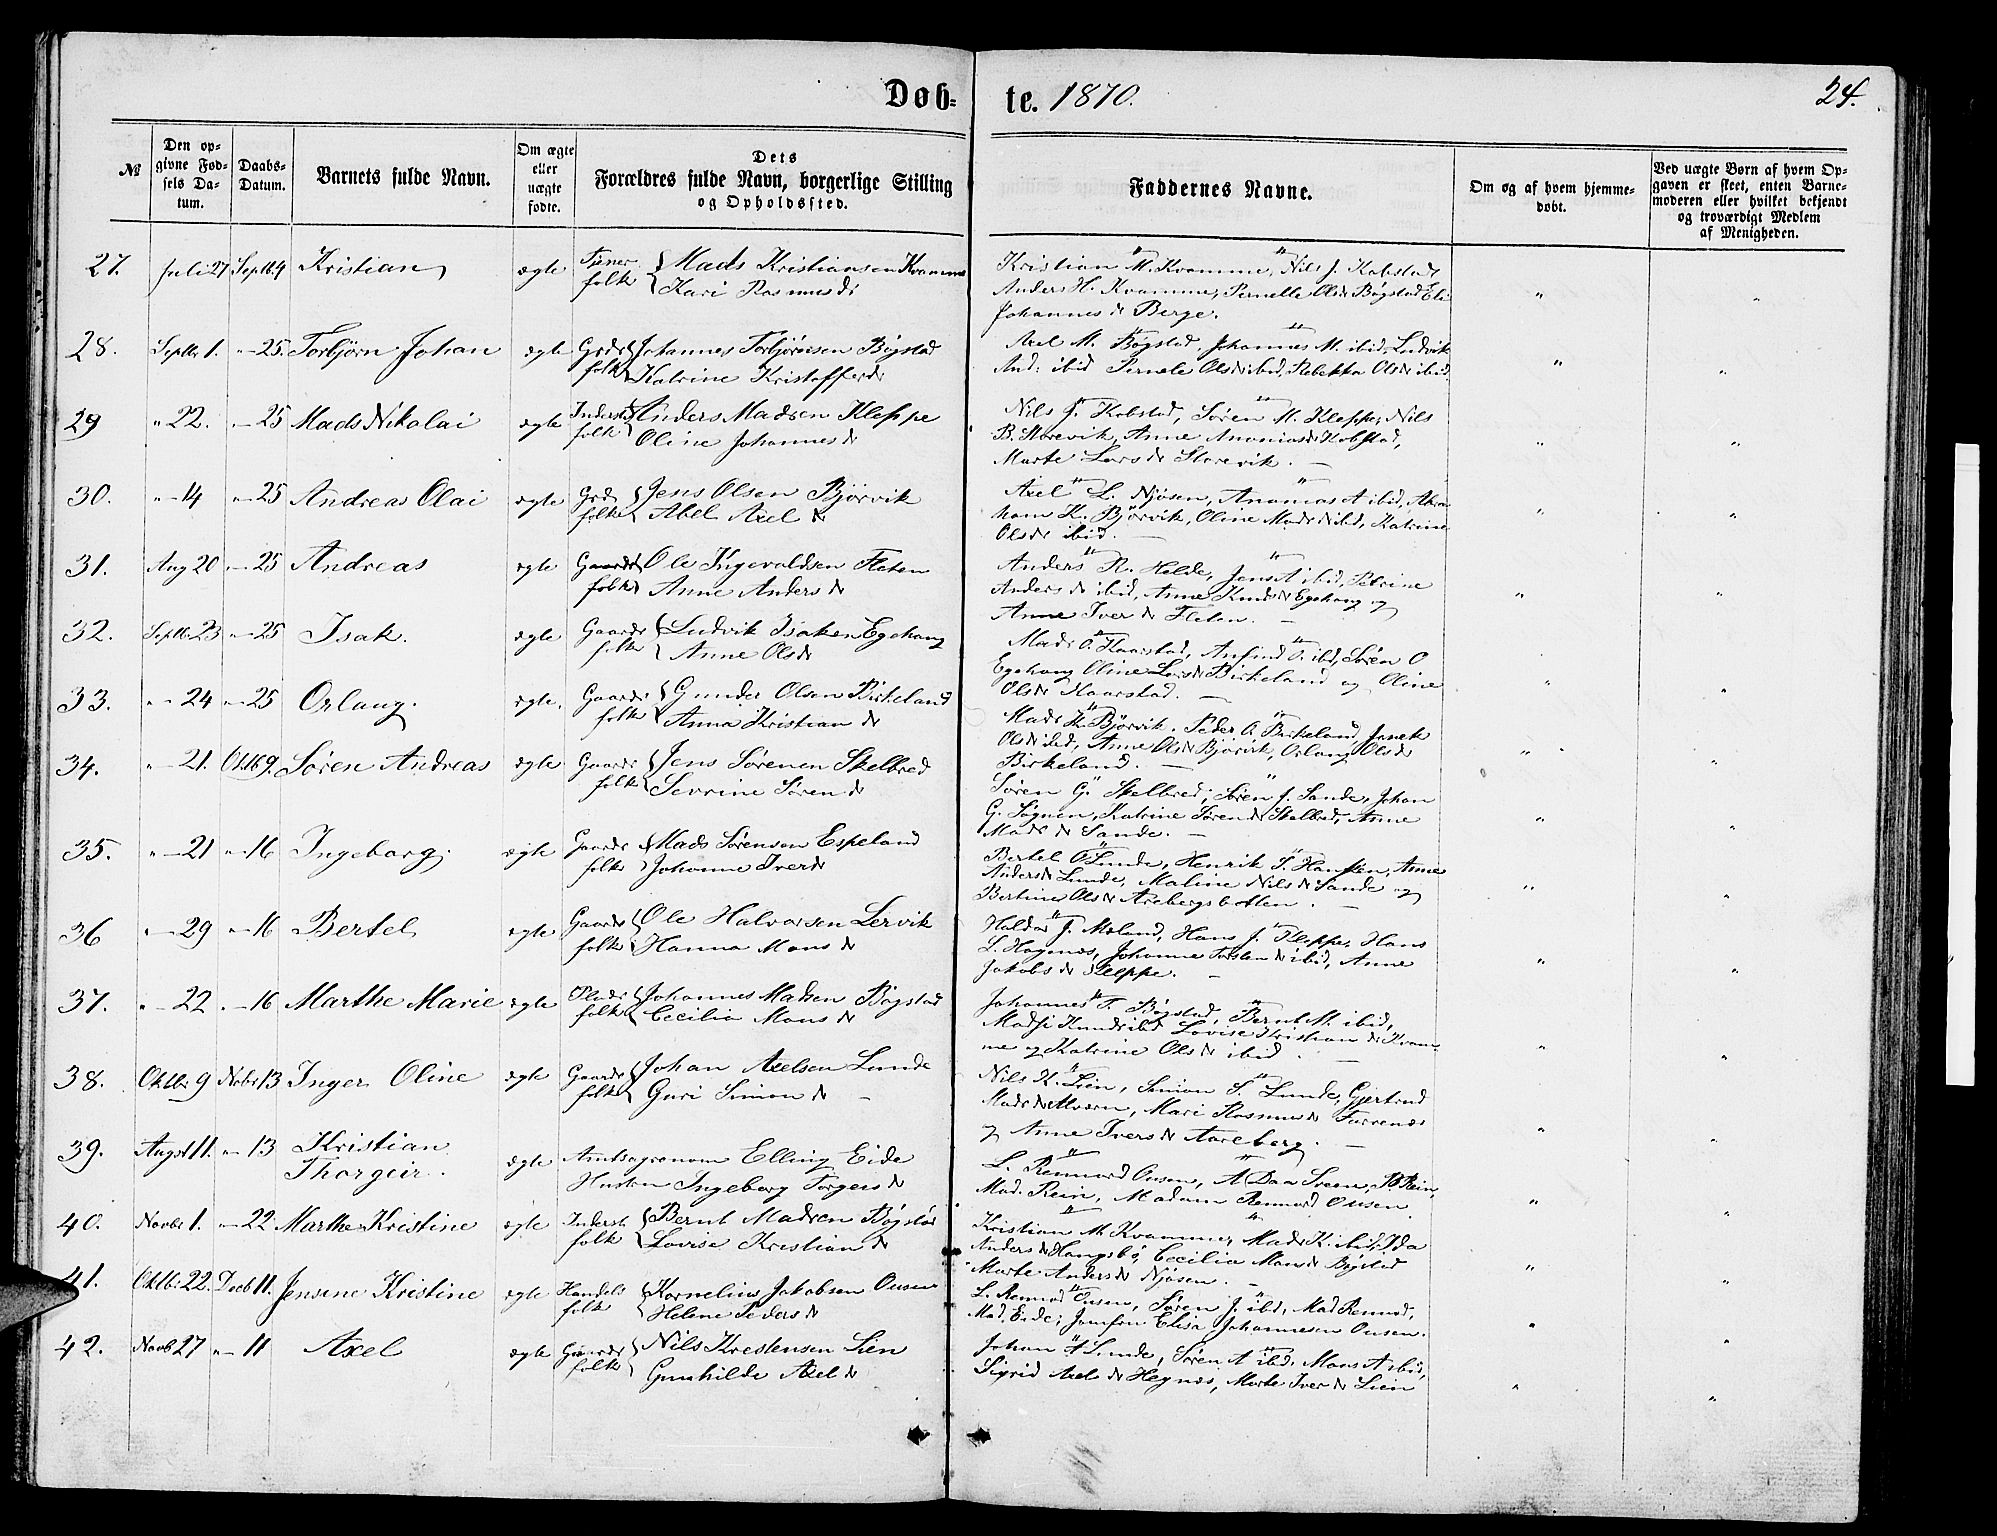 Døb-
te. 1870.
24.
№
Den op-
givne Fød-
sels Da-
tum.
Daabs-
Datum.
Barnets fulde Navn.
Om ægte
eller
uægte
fødte.
Dets
Forældres fulde Navn, borgerlige Stilling
og Opholdssted.
Faddernes Navne.
Om og af hvem hjemme-
døbt.
Ved uægte Børn af hvem Op-
gaven er skeet, enten Barne-
moderen eller hvilket bekjendt
og troværdigt Medlem
af Menigheden.
27. Juli 27 Septb. 4 Kristian ægte Tjener folk Mads Kristiansen Kvamme
Kari Rasmusdr
Kristian M. Kvamme, Nils J. Kobstad,
Anders H. Kvamme, Pernelle Olsdr Bøgstad
Johannesdr Berge.
28. Septbr 1. " 25. Torbjørn Johan ægte Grdr folk Johannes Torbjørnsen Bøgstad
Katrine Kristofferdr
Axel M. Bøgstad, Johannes M. ibid, Ludvik
And: ibid Pernele Olsdr ibid, Rebekka Olsdr ibid.
29 " 22. " 25 Mads Nikolai ægte Inderst folk Anders Madsen Kleppe
Oline Johannesdr
Nils J. Kobstad, Søren M. Kleppe, Nils
B. Storevik, Anne Ananiasdr Kobstad,
Marte Larsdr Storevik.
30. " 14 " 25 Andreas Olai ægte Grd folk Jens Olsen Bjørvik
Abel Axeldr
Axel L. Njøsen, Ananias A ibid, Abra-
ham K. Bjørvik, Oline Madsdr ibid, Katrine
Olsdr ibid.
31. Aug 20 " 25 Andreas ægte Gaardr folk Ole Ingevaldsen Fleten
Anne Andersdr
Anders R. Helde, Jens A ibid, Petrine
Andersdr ibid, Anne Knudsdr Egehaug og
Anne Iverdr Fleten.
32. Septb. 23 " 25 Isak. ægte Gaardr folk Ludvik Isaksen Egehaug
Anne Olsdr
Mads O. Haarstad, Anfind O. ibid, Søren O
Egehaug Oline Larsdr Birkeland og Oline
Olsdr Haarstad.
33. " 24 " 25 Orlaug. ægte. Gaardr folk Gunder Olsen Birkeland
Anna Kristiandr
Mads K. Bjørvik. Peder O. Birkeland,
Olsdr ibid, Anne Olsdr Bjørvik, Orlaug Olsdr
Birkeland.
34. " 21. Oktb 9. Søren Andreas ægte Gaardr folk Jens Sørensen Skelbred
Sevrine Sørendr
Søren G. Skelbred, Søren J. Sande, Johan
G. Sognen, Katrine Sørendr Skelbred, Anne
Madsdr Sande.
35. " 21 " 16 Ingeborg. ægte Gaardr folk Mads Sørensen Espeland
Johanne Iverdr
Bertel O Lunde, Henrik T. Hansen, Anne
Andersdr Lunde, Maline Nilsdr Sande og
Bertine Olsdr Aarebergsbotten.
36 " 29 " 16 Bertel ægte Gaardr folk Ole Halvorsen Lervik
Hanna Monsdr
Haldor J. Moland, Hans J. Kleppe, Hans
L. Hognæs, Johanne Torstendr ibid, Anne
Jakobsdr Kleppe.
37. " 22 " 16 Marthe Marie ægte Pladsr folk Johannes Madsen Bøgstad
Cecilia Monsdr
Johannes T. Bøgstad, Bernt M. ibid,
Madsi Knudsr ibid Lovise Kristiandr Kvam-
me og Katrine Olsdr ibid.
38. Oktbr 9 Nobr 13 Inger Oline ægte Gaardr folk Johan Axelsen Lunde
Guri Simondr
Nils K. Lien, Simon S. Lunde, Gjertrud
Madsdr Alværn, Mari Rasmusdr Furrenæs
og Anne Iversdr Aareberg.
39. Augst 11. " 13 Kristian
Thorgeir. ægte Amtsagronom Elling Eide
Hustru Ingeborg Torgersdr
L. Rennord Ousen, A Daa Sveen, B Rein,
Mad. Rein, Madam Rennord Ousen
40. Novbr 1. " 22 Marthe Kristine ægte Inderst. folk Bernt Madsen Bøgstad
Lovise Kristiandr
Kristian M. Kvamme, Mads K. ibid, Ida
Andersdr Haugsbø, Cecilia Monsdr Bøgstad
Marte Andersdr Njøsen.
41. Oktb. 22. Decb 11. Jensine Kristine ægte Handels folk Kornelius Jakobsen Ousen
Helene Pedersdr
L. Rennord Ousen, Søren J. ibid, Mad Rennord,
Mad. Eide, Jomfru Elisa Johannesen Ousen.
42. Novb 27 " 11 Axel ægte Gaardr folk Nils Kristensen Lien
Gunhilde Axeldr
Johan A Lunde, Søren A ibid, Mons A ibid,
Sigrid Axelsdr Hegnæs, Marte Iverdr Lien